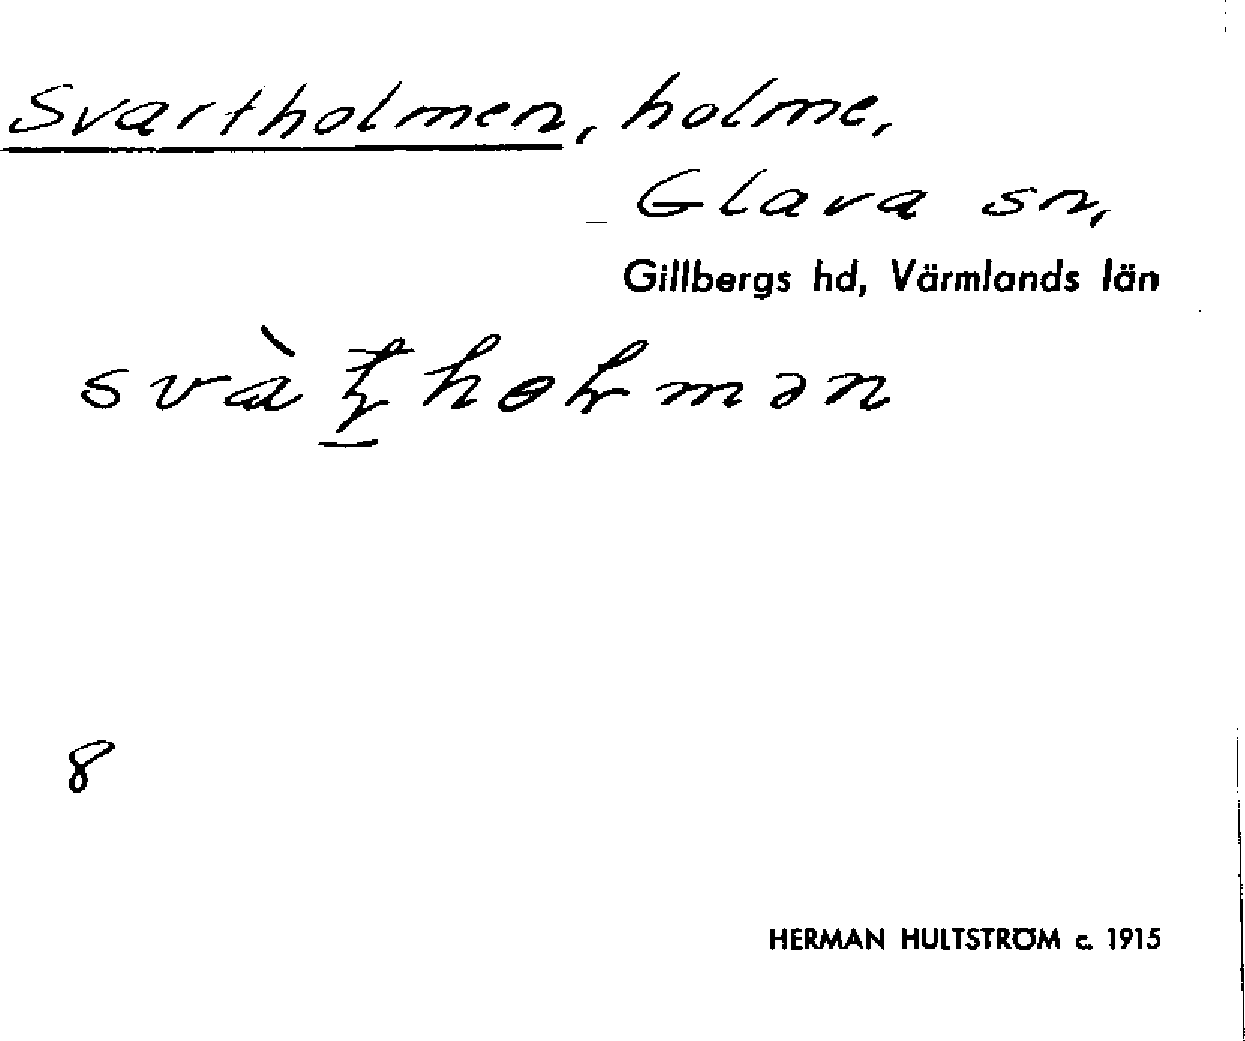 Svartholmen, holme,
Glava sn,
Gillbergs hd, Värmlands län
8
HERMAN HULTSTRÖM c. 1915